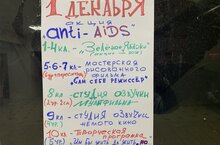 1 ДЕКАБРЯ
акция
anti-AiDS"
1-4 кл. - "Зелёное Яблоко"
5-6-7 кл - мастерская
рисованного
фильма
"САМ СЕБЕ РЕЖИССЕР"
8 кл - студия озвучки
мультфильма
9 кл - СТУДИЯ ОЗВУЧКИ
НЕМОГО КИНО
10 кл - Творческая
программа